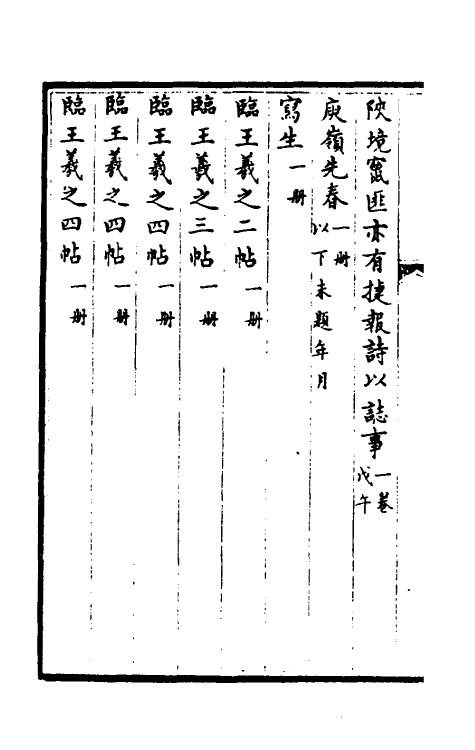 陜境竄匪亦有捷報詩以誌事一卷戊午
庾嶺先春一册以下未題年月
寫生一册
臨王羲之二帖一册
臨王羲之三帖一册
臨王羲之四帖一册
臨王羲之四帖一册
臨王羲之四帖一册